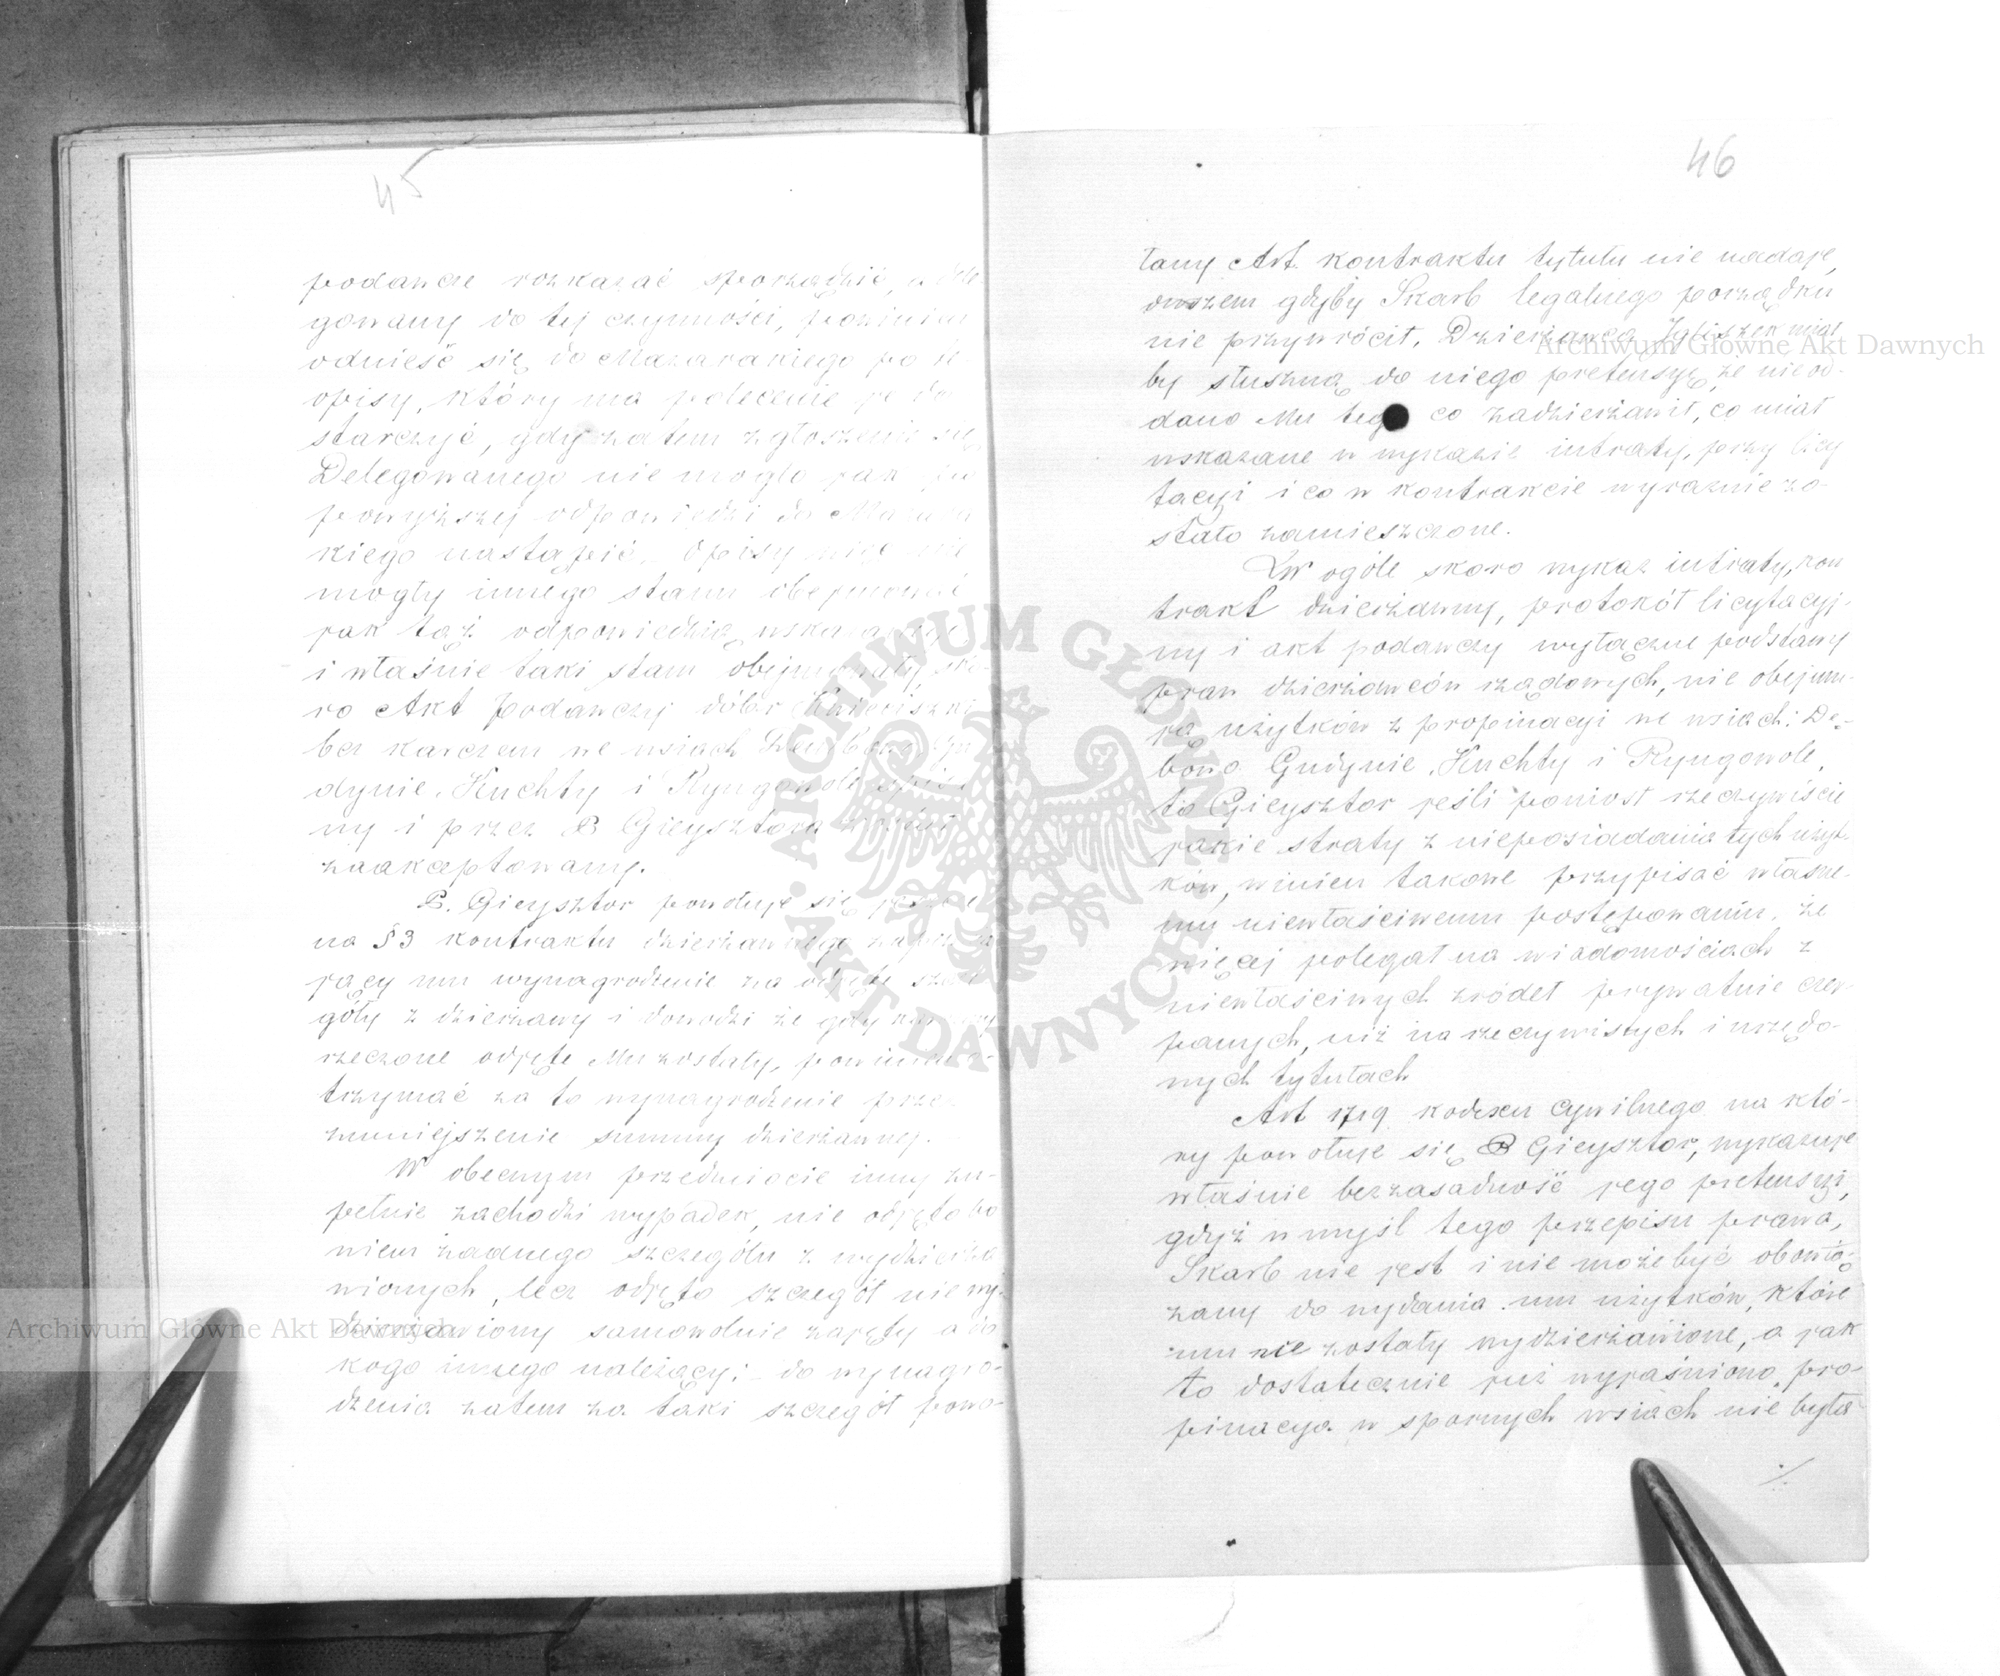 45
podawcze rozkazać sporządzić, a dele
gowany do tej czynności, powinien
odnieść się do Mazarakiego po te
opisy, który ma polecenie je do
starczyć, gdy zatem zgłoszenie się
Delegowanego nie mogło jak po
powyższej odpowiedzi do Mazara
kiego nastąpić, opisy więc nie
mogły innego stanu obejmować
jak tąż odpowiedzią wskazanego
i właśnie taki stan obejmowały, sko-
ro Akt podawczy dóbr
bez karczem we wsiach Dembowo Gu
dynie, Kuchty i Ryngowole spisa
ny i przez P. Gieysztora został
zaakceptowany.
P. Gieysztor powołuje się jeszcze
na § 3 kontraktu dzierżawnego zapewnia
jący mu wynagrodzenie za odjęte szcze
góły z dzierżawy i dowodzi że gdy karczmy
rzeczone odjęte Mu zostały, powinien o-
trzymać za to wynagrodzenie przez
zmniejszenie summy dzierżawnej.
W obecnym przedmiocie inny zu-
pełnie zachodzi wypadek, nie odjęto bo
wiem żadnego szczegółu z wydzierża
wionych, lecz odjęto szczegół nie wy-
dzierżawiony samowolnie zajęty a do
kogo innego należący; do wynagro-
dzenia zatem za taki szczegół, powo-
46
łany Art. kontraktu tytułu nie nadaje,
owszem gdyby Skarb legalnego porządku
nie przywrócił, Dzierżawca Igliszek miał
by słuszną do niego pretensyę, że nie od-
dano Mu tego co zadzierżawił, co miał
wskazane w wykazie intraty, przy licy
tacyi i co w kontrakcie wyraźnie zo-
stało zamieszczone.
W ogóle skoro wykaz intraty, kon
trakt dzierżawny, protokół licytacyj-
ny i akt podawczy wyłączne podstawy
praw dzierżawców rządowych, nie obejmu-
ją użytków z propinacyi we wsiach: De-
bowo Gudynie, Kuchty i Ryngowole,
to Gieysztor jeśli poniósł rzeczywiście
jakie straty z nieposiadania tych użyt-
ków, winien takowe przypisać własne-
mu niewłaściwemu postępowaniu, że
więcej polegał na wiadomościach z
niewłaściwych źródeł prywatnie czer
panych, niż na rzeczywistych i urzędo-
wych tytułach
Art 1719 kodexu cywilnego na któ-
ry powołuje się P Gieysztor, wykazuje
właśnie bezzasadność jego pretensyi,
gdyż w myśl tego przepisu prawa,
Skarb nie jest i nie może być obowią-
zany do wydania mu użytków, które
mu nie zostały wydzierżawione, a jak
to dostatecznie już wyjaśniono, pro-
pinacya w spornych wsiach nie była
./.
ARCHIWUM GŁÓWNE AKT DAWNYCH
Archiwum Główne Akt Dawnych
Archiwum Główne Akt Dawnych